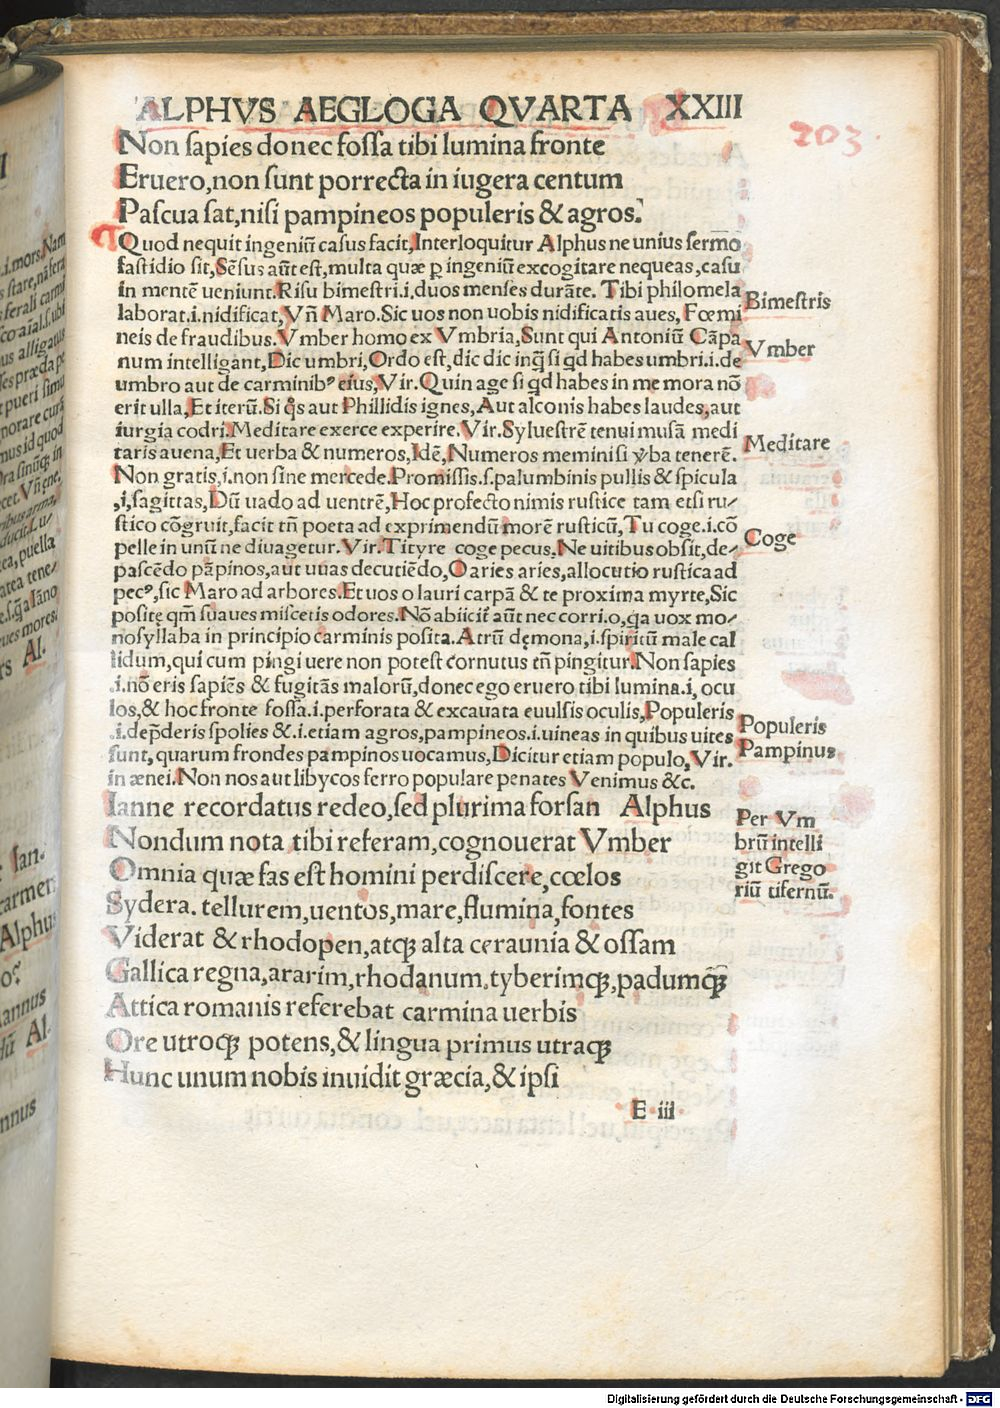 ALPHVS AEGLOGA QVARTA XXIII
203.
Non sapies donec fossa tibi lumina fronte
Eruero,non sunt porrecta in iugera centum
Pascua sat,nisi pampineos populeris & agros.
Quod nequit ingeniū casus facit,Interloquitur Alphus ne unius sermo
fastidio sit,Sēsus aūt est,multa quæ ꝑ ingeniū excogitare nequeas,casu
in mentē ueniunt.Risu bimestri.i,duos menses durāte. Tibi philomela
laborat.i.nidificat,Vñ Maro.Sic uos non uobis nidificatis aues, Fœmi
neis de fraudibus.Vmber homo ex Vmbria,Sunt qui Antoniū Cāpa
num intelligant,Dic umbri,Ordo est,dic dic inq̄ si qd habes umbri.i.de
umbro aut de carminibꝰ eius,Vir.Quin age si qd habes in me mora nō
erit ulla,Et iterū.Si q̄s aut Phillidis ignes,Aut alconis habes laudes,aut
iurgia codri.Meditare exerce experire.Vir.Syluestrē tenui musā medi
taris auena,Et uerba & numeros,Idē,Numeros memini si v̄ba tenerē.
Non gratis,i.non sine mercede.Promissis.s.palumbinis pullis & spicula
,i,sagittas,Dū uado ad uentrē,Hoc profecto nimis rustice tam etsi ru/
stico cōgruit,facit tñ poeta ad exprimendū morē rusticū,Tu coge.i.cō
pelle in unū ne diuagetur.Vir.Tityre coge pecus.Ne uitibus obsit,de/
pascēdo pāpinos,aut uuas decutiēdo,O aries aries,allocutio rustica ad
pecꝰ,sic Maro ad arbores.Et uos o lauri carpā & te proxima myrte,Sic
positę qm̄ suaues miscetis odores.Nō abiicit̄ aūt nec corri.o,qa uox mo/
nosyllaba in principio carminis posita.Atrū dęmona,i.spiritū male cal
lidum,qui cum pingi uere non potest cornutus tñ pingitur.Non sapies
.i.nō eris sapiēs & fugitās malorū,donec ego eruero tibi lumina.i, ocu
los,& hoc fronte fossa.i.perforata & excauata euulsis oculis,Populeris
.i.dep̄deris spolies &.i.etiam agros,pampineos.i.uineas in quibus uites
sunt,quarum frondes pampinos uocamus,Dicitur etiam populo,Vir.
in ænei.Non nos aut libycos ferro populare penates Venimus &c.
Bimestris
Vmber
Meditare
Coge
Populeris
Pampinus
Ianne recordatus redeo,sed plurima forsan Alphus
Nondum nota tibi referam,cognouerat Vmber
Omnia quæ fas est homini perdiscere,cœlos
Sydera.tellurem,uentos,mare,flumina,fontes
Viderat & rhodopen,atqꝫ alta ceraunia & ossam
Gallica regna,ararim,rhodanum,tyberimqꝫ,padumqꝫ
Attica romanis referebat carmina uerbis
Ore utroqꝫ potens,& lingua primus utraqꝫ
Hunc unum nobis inuidit græcia,& ipsi
Per Vm
brū intelli
git Grego
riū tifernū.
E iii
Digitalisierung gefördert durch die Deutsche Forschungsgemeinschaft - DFG